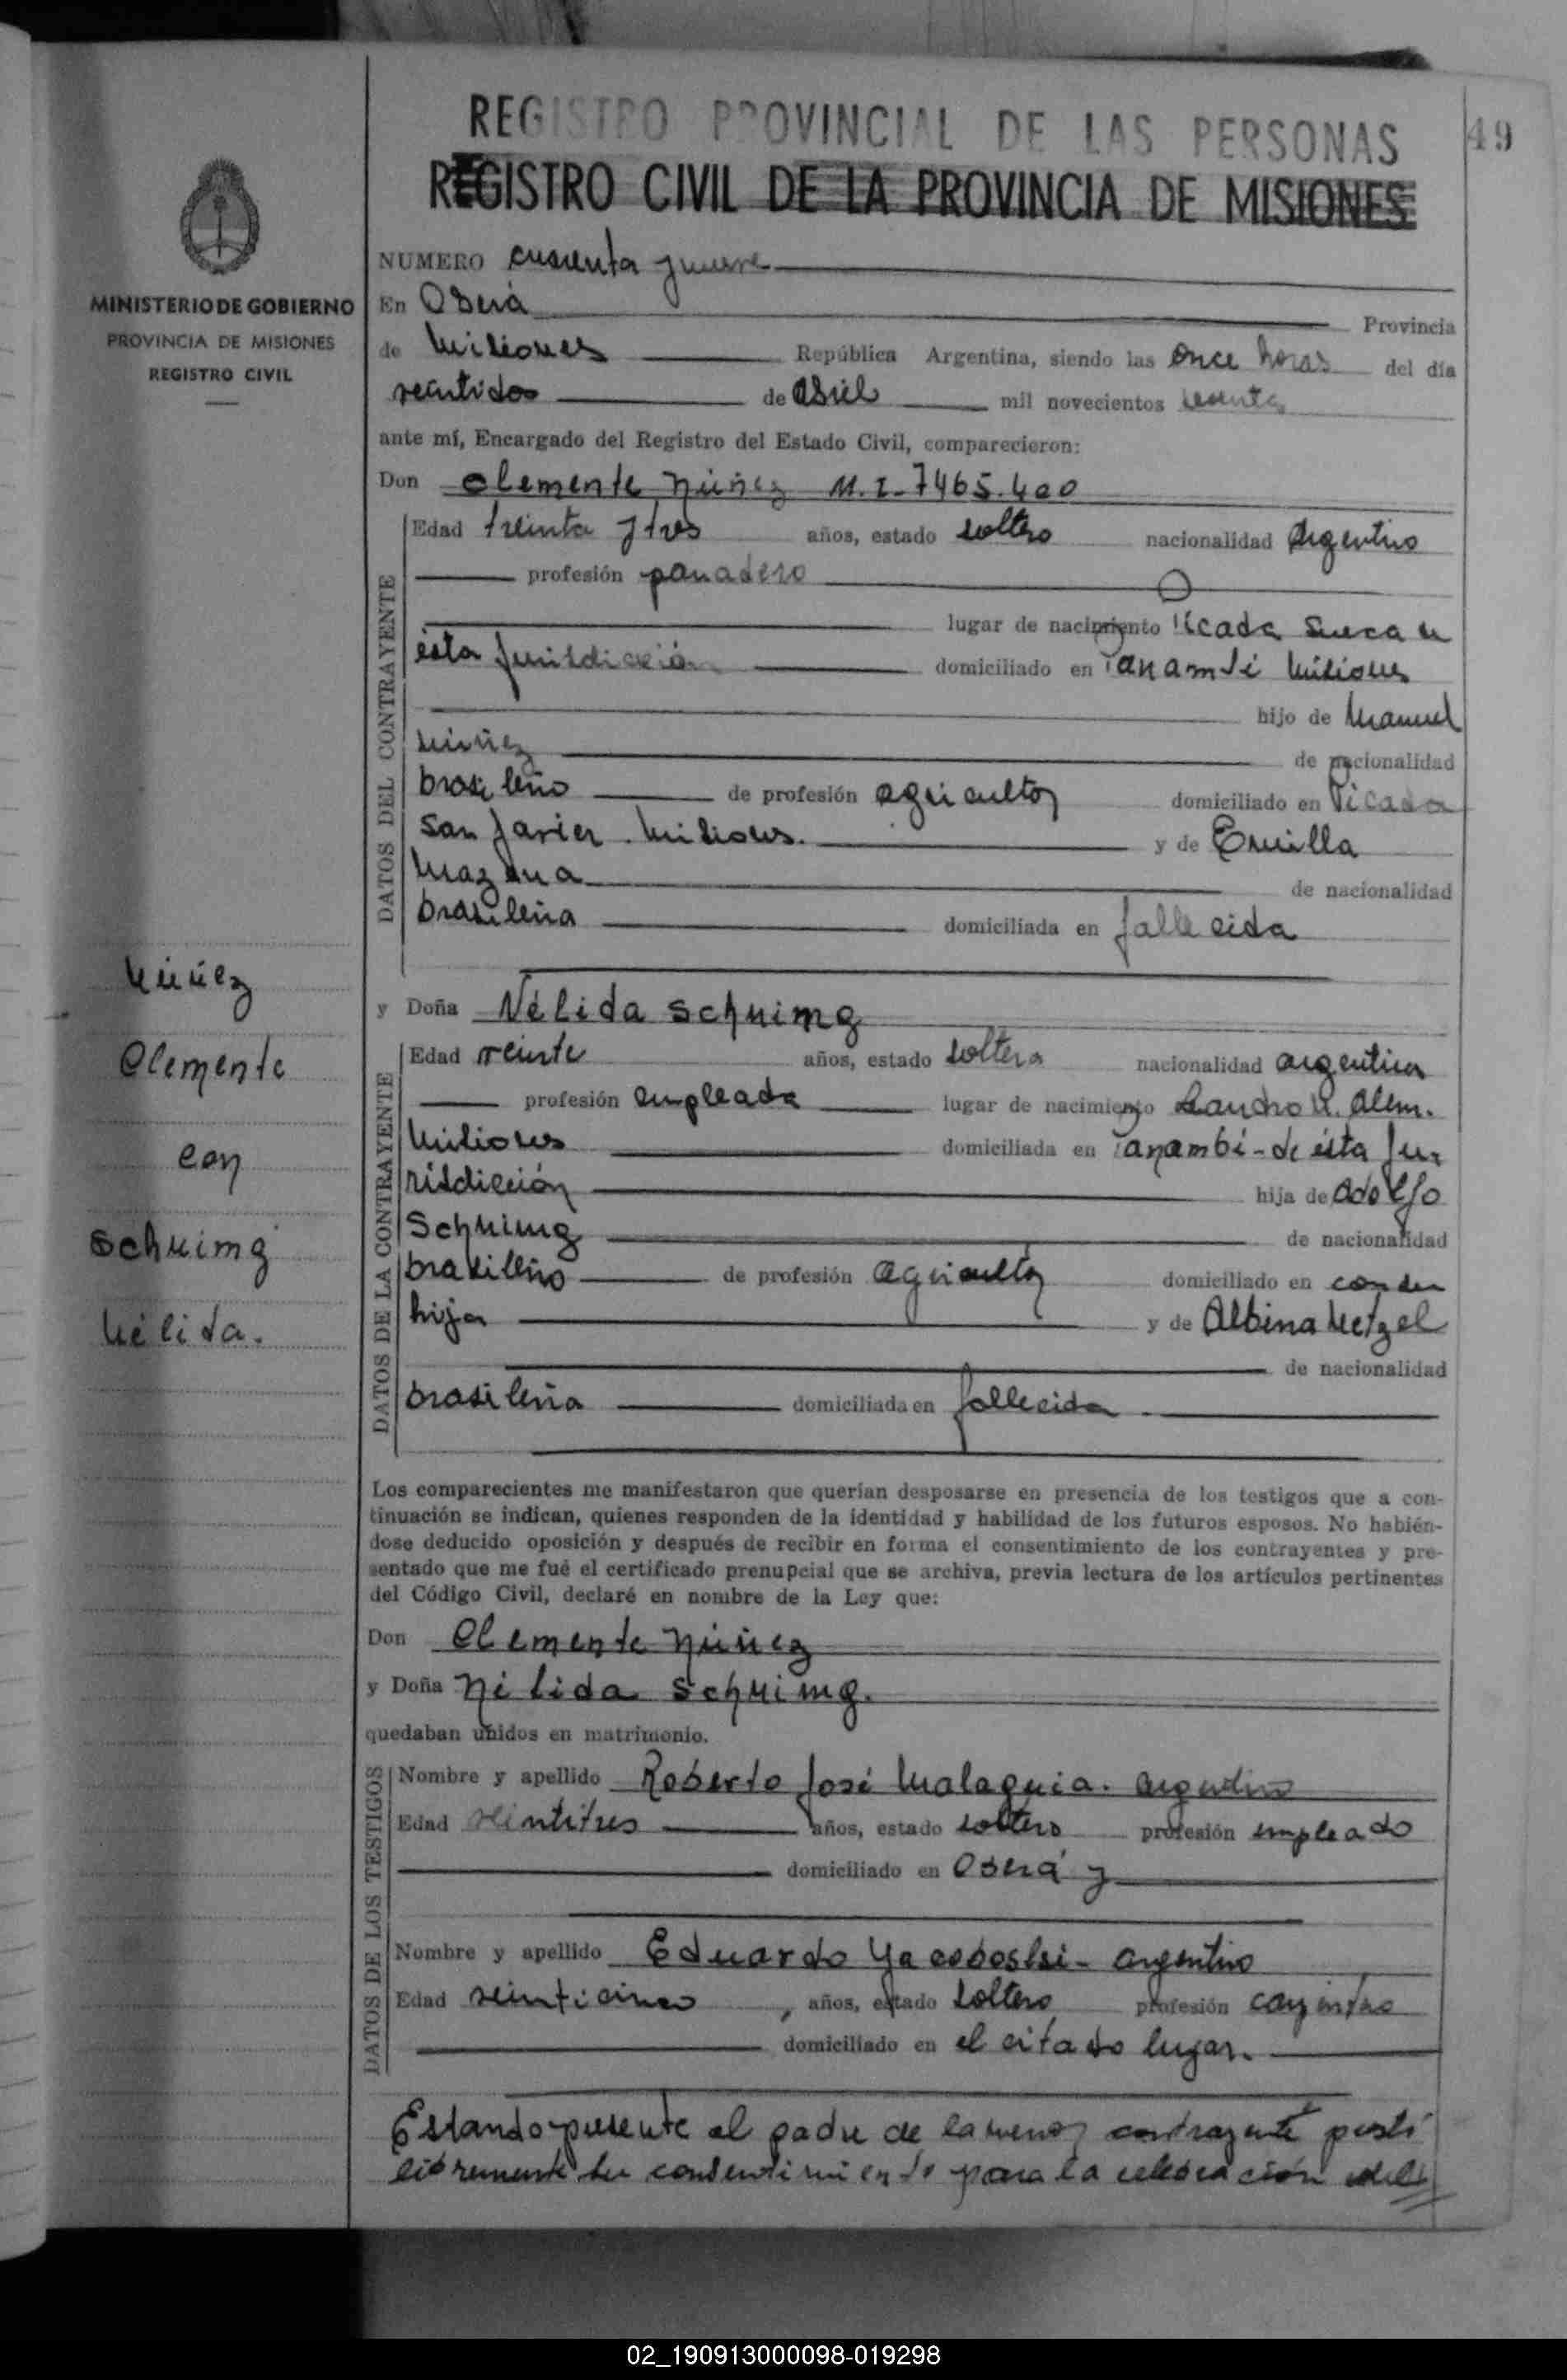 REGISTRO PROVINCIAL DE LAS PERSONAS
49
REGISTRO CIVIL DE LA PROVINCIA DE MISIONES
MINISTERIO DE GOBIERNO
PROVINCIA DE MISIONES
REGISTRO CIVIL
NUMERO cuarenta y nueve
En Oberá Provincia
de Misiones República Argentina, siendo las once horas del día
veintidos de abril mil novecientos sesenta
ante mí, Encargado del Registro del Estado Civil, comparecieron:
Don Clemente Núñez M.I. 7465.400
DATOS DEL CONTRAYENTE
Edad treinta y tres años, estado soltero nacionalidad argentino
profesión panadero
lugar de nacimiento Picada Sueca de
ésta Jurisdicción domiciliado en Panambí Misiones
hijo de Manuel
Núñez de nacionalidad
brasileño de profesión agricultor domiciliado en Picada
San Javier. Misiones. y de
de nacionalidad
brasileña domiciliada en fallecida
y Doña Nélida Schuimg
DATOS DE LA CONTRAYENTE
Edad veinte años, estado soltera nacionalidad argentina
profesión empleada lugar de nacimiento Leandro N. Alem.
Misiones domiciliada en Panambí - de ésta Ju-
risdicción hija de Adolfo
Schuimg de nacionalidad
brasileño de profesión agricultor domiciliado en con su
hija y de Albina Metzel
de nacionalidad
brasileña domiciliada en fallecida
Los comparecientes me manifestaron que querían desposarse en presencia de los testigos que a con-
tinuación se indican, quienes responden de la identidad y habilidad de los futuros esposos. No habién-
dose deducido oposición y después de recibir en forma el consentimiento de los contrayentes y pre-
sentado que me fué el certificado prenupcial que se archiva, previa lectura de los artículos pertinentes
del Código Civil, declaré en nombre de la Ley que:
Don Clemente Núñez
y Doña Nélida Schuimg.
quedaban unidos en matrimonio.
DATOS DE LOS TESTIGOS
Nombre y apellido Roberto José Malaguia. argentino
Edad veintitres años, estado soltero profesión empleado
domiciliado en Oberá y
Nombre y apellido Eduardo argentino
Edad veinticinco, años, estado soltero profesión
domiciliado en el citado lugar.
Estando presente el padre de la menor contrayente prestó
libremente su consentimiento para la celebración del
Núñez
Clemente
con
Schuimg
Nélida.
02_190913000098-019298